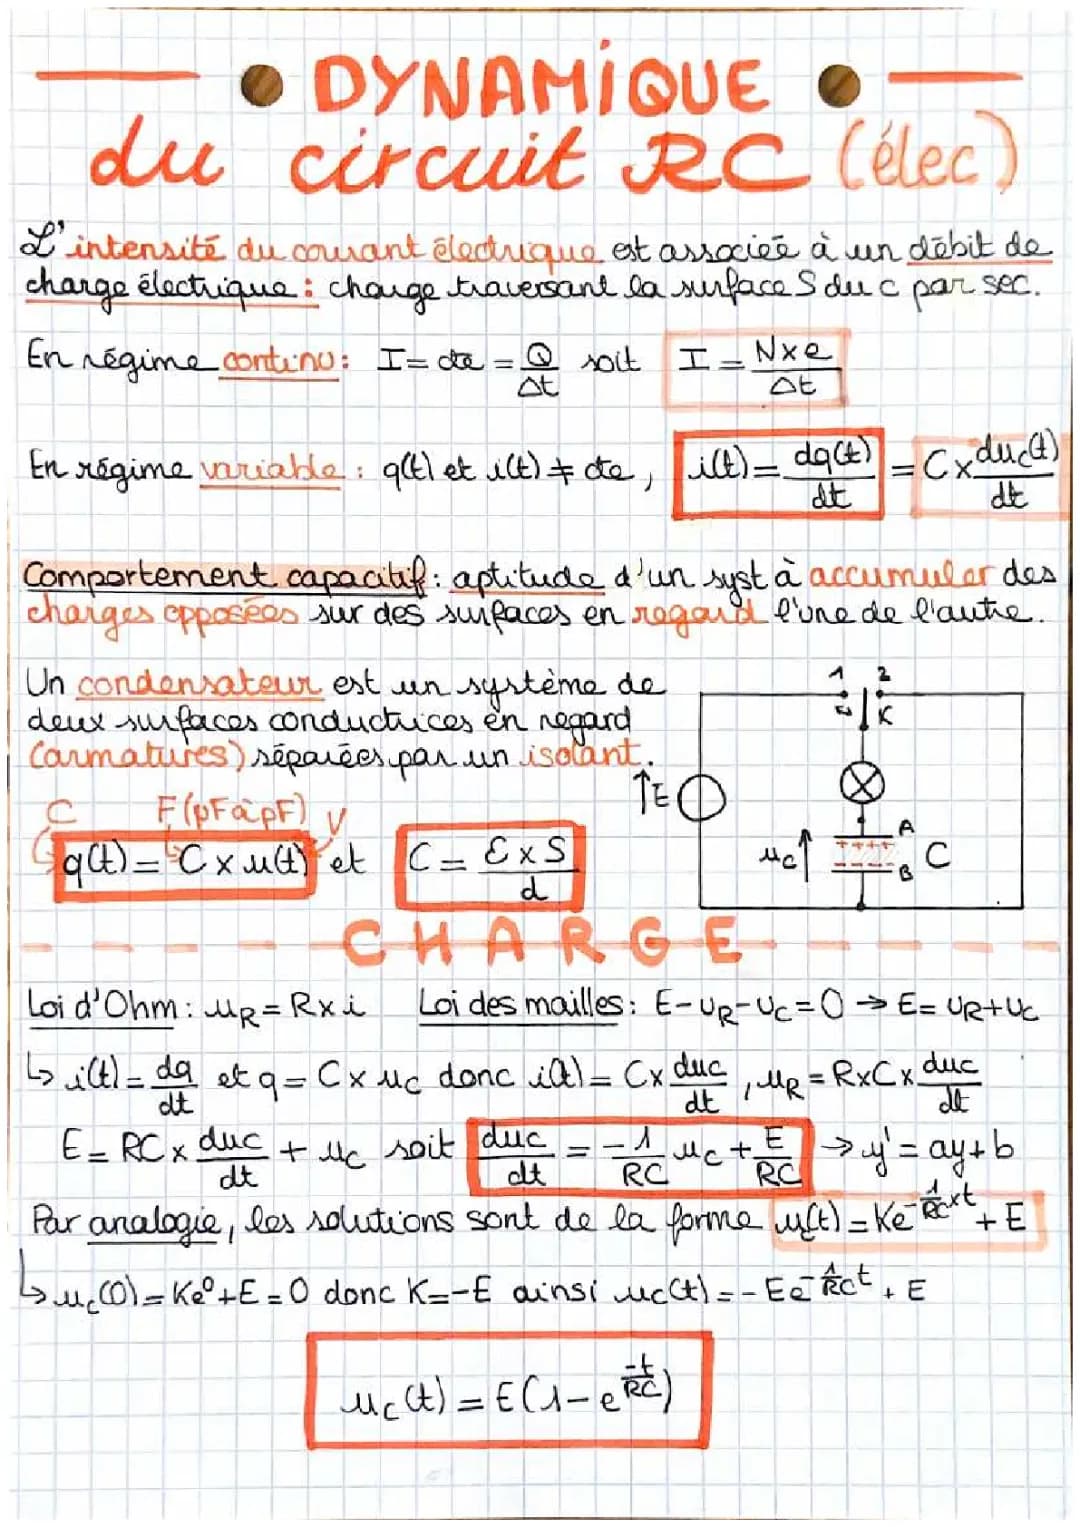 DYNAMIQUE
du circuit RC (élec)
L'intensité du courant électrique est associée à un débit de
charge électrique : charge traversant la surface S du c par sec.
En régime continu : I = cte = Q/Δt soit I = N×e/Δt
En régime variable : q(t) et i(t) ≠ cte, i(t) = dq(t)/dt = C×duc(t)/dt
Comportement capacitif : aptitude d'un syst à accumuler des
charges opposées sur des surfaces en regard l'une de l'autre.
Un condensateur est un système de
deux surfaces conductrices en regard
(armatures) séparées par un isolant.
1 2
K
↑E
uc↑
A
++++
----
B
C
C F(pF à µF) V
q(t) = C × u(t) et C = Ɛ×S/d
CHARGE
Loi d'Ohm : uR = R×i Loi des mailles : E-UR-UC=0 → E=UR+UC
↳ i(t) = dq/dt et q = C×uc donc i(t) = C×duc/dt , uR = R×C×duc/dt
E = RC × duc/dt + uc soit duc/dt = -1/RC uc + E/RC → y' = ay+b
Par analogie, les solutions sont de la forme uc(t) = Ke^(-1/RC×t) + E
↳ uc(0) = Ke⁰+E = 0 donc K=-E ainsi uc(t) = -Ee^(-1/RC t) + E
uc(t) = E(1-e^(-t/RC))